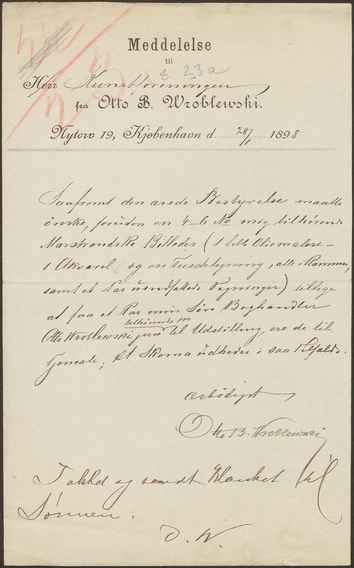 Meddelelse
til
Herr Kunstforeningen
E 23a
fra Otto B. Wróblewski.
Nytorv 19, Kjøbenhavn d. 28/1 1898
Saafremt den ærede Bestyrelse maatte
ønske, foruden en mig tilhørende
Marstrandske Billeder (1 lille Oliemaleri
1 Akvarel og en Tuschtegning, alle i Ramme,
samt et Par uindfattede Tegninger) tillige
at faa et Par min Søn Boghandler
Otto Wroblewski jun. tilhørende til Udstilling ere de til
Tjeneste; et Skema udbedes i saa Tilfælde.
ærbødigst
Otto B. Wroblewski
Takket og sendt Blanket til
Sønnen.